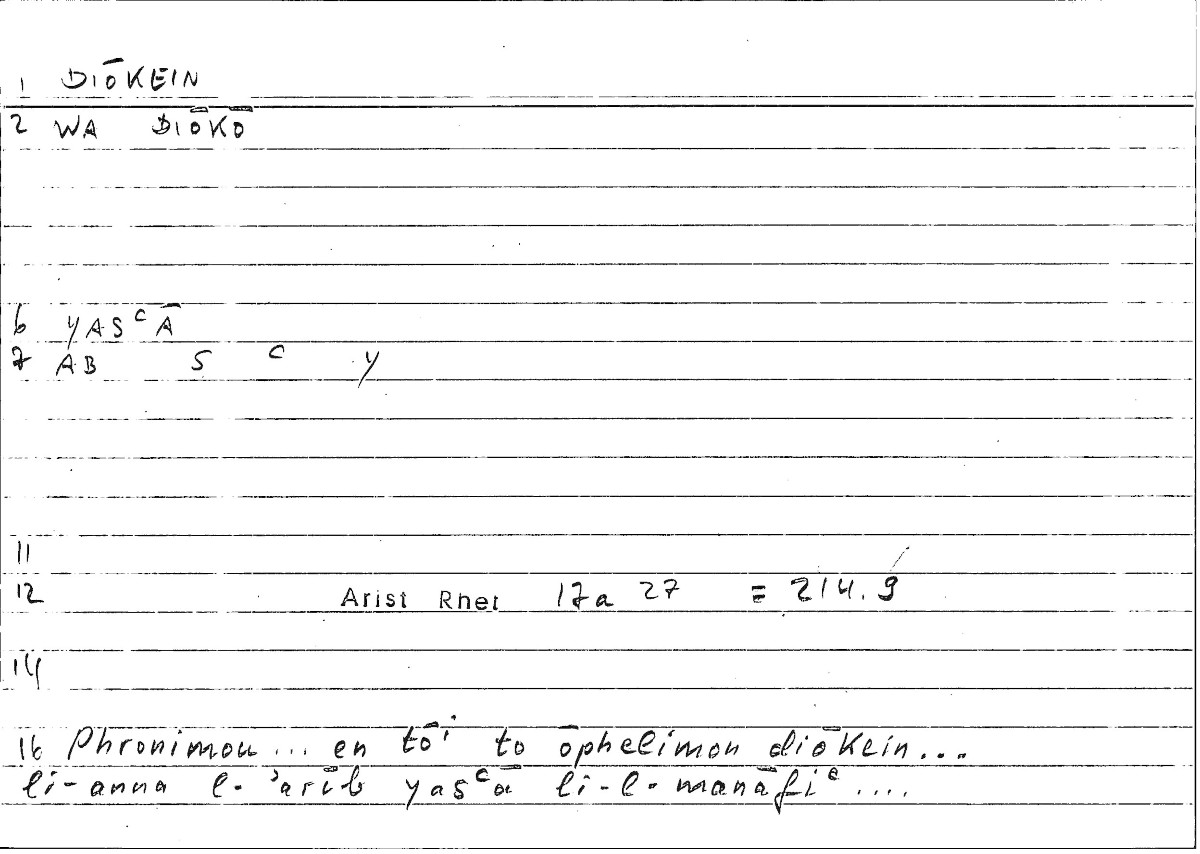 1 DIŌKEIN
2 WA DIŌKŌ
6 YASᶜĀ
7 AB S ᶜ Y
11
12 Arist Rhet 17a 27 = 214.9
14
16 Phronimou ... en tōi to ōphelimon diōkein...
li-anna l-ʾarīb yasᶜā li-l-manāfiᶜ ....